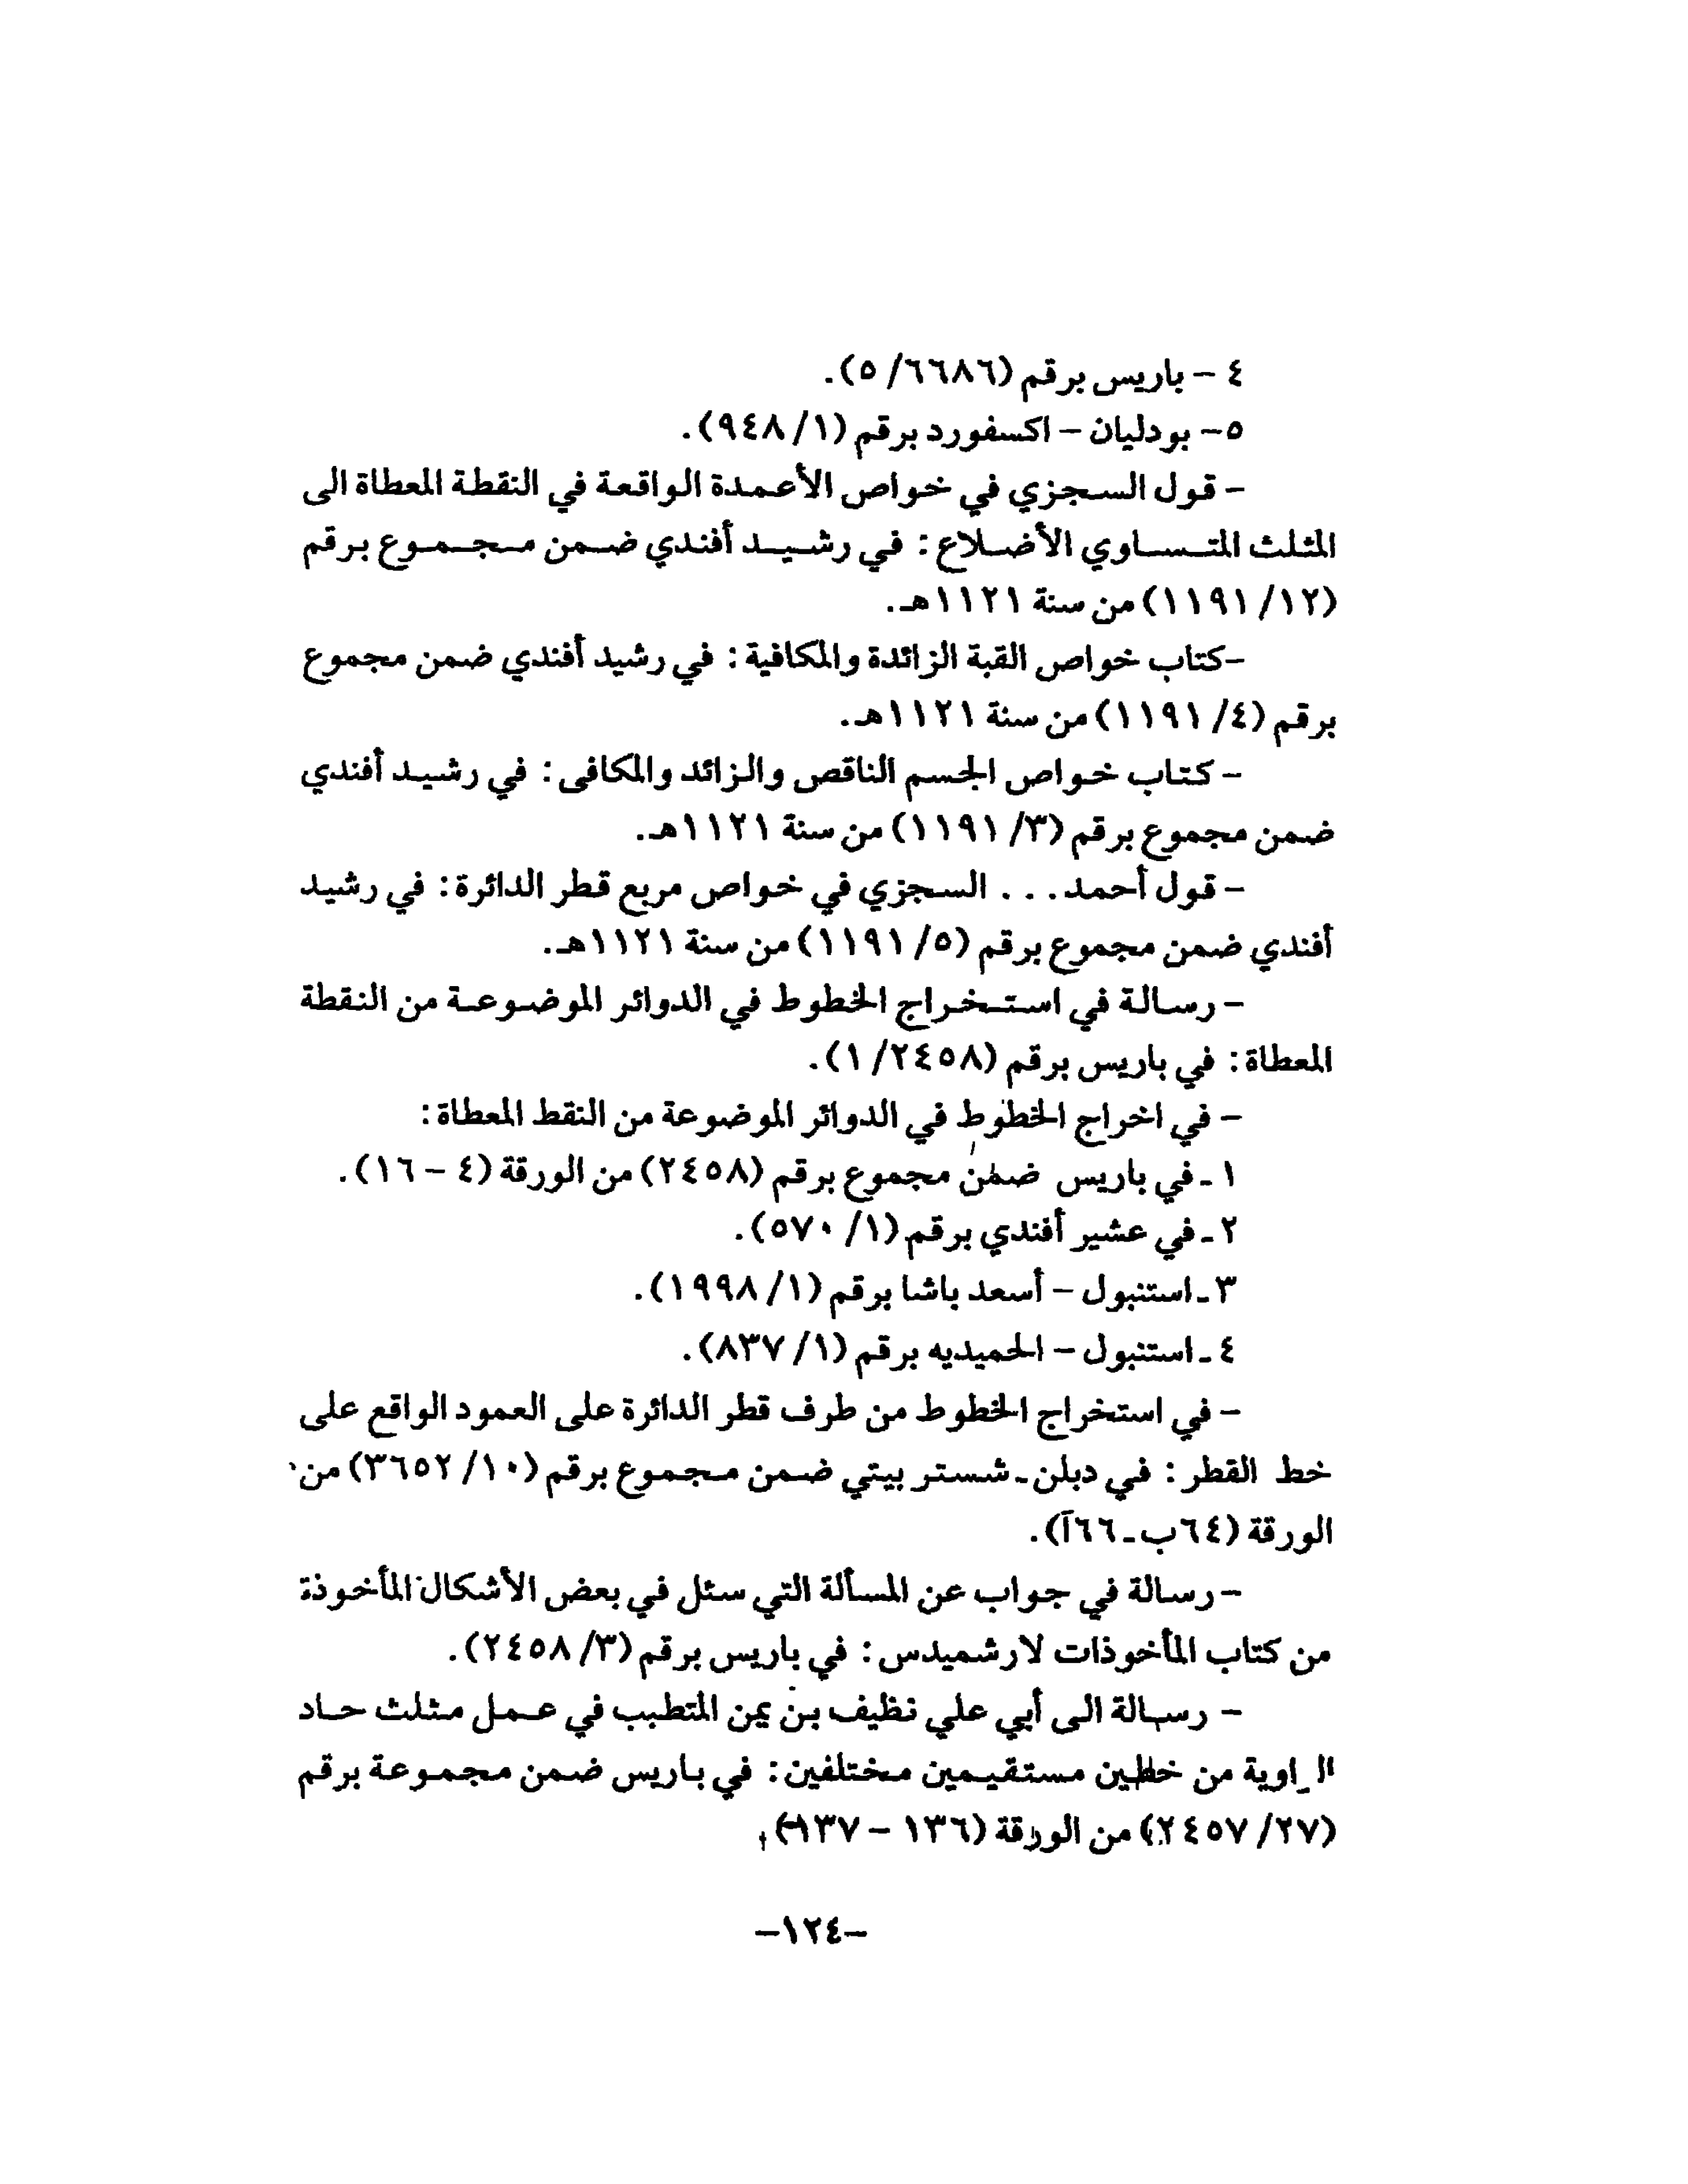 ٤ - باريس برقم (٦٦٨٦/ ٥).
٥- بودليان - اكسفورد برقم (١/ ٩٤٨).
- قول السجزي في خواص الأعمدة الواقعة في النقطة المعطاة الى
المثلث المتساوي الأضلاع: في رشيد أفندي ضمن مجموع برقم
(١٢/ ١١٩١) من سنة ١١٢١هـ.
-كتاب خواص القبة الزائدة والمكافية: في رشيد أفندي ضمن مجموع
برقم (٤/ ١١٩١) من سنة ١١٢١هـ.
- كتاب خواص الجسم الناقص والزائد والمكافى: في رشيد أفندي
ضمن مجموع برقم (٣/ ١١٩١) من سنة ١١٢١هـ.
- قول أحمد... السجزي في خواص مربع قطر الدائرة: في رشيد
أفندي ضمن مجموع برقم (٥/ ١١٩١) من سنة ١١٢١هـ.
- رسالة في استخراج الخطوط في الدوائر الموضوعة من النقطة
المعطاة: في باريس برقم (٢٤٥٨/ ١).
- في اخراج الخطوط في الدوائر الموضوعة من النقط المعطاة:
١ ـ في باريس ضمن مجموع برقم (٢٤٥٨) من الورقة (٤ - ١٦).
٢ ـ في عشير أفندي برقم (١/ ٥٧٠).
٣ ـ استنبول - أسعد باشا برقم (١/ ١٩٩٨).
٤ ـ استنبول - الحميديه برقم (١/ ٨٣٧).
- في استخراج الخطوط من طرف قطر الدائرة على العمود الواقع على
خط القطر: في دبلن ـ شستر بيتي ضمن مجموع برقم (١٠/ ٣٦٥٢) من
الورقة (٦٤ب ـ ٦٦آ).
- رسالة في جواب عن المسألة التي سئل في بعض الأشكال المأخوذة
من كتاب المأخوذات لارشميدس: في باريس برقم (٣/ ٢٤٥٨).
- رسالة الى أبي علي نظيف بن يمن المتطبب في عمل مثلث حاد
الزاوية من خطين مستقيمين مختلفين: في باريس ضمن مجموعة برقم
(٢٧/ ٢٤٥٧) من الورقة (١٣٦ - ١٣٧)
-١٢٤-